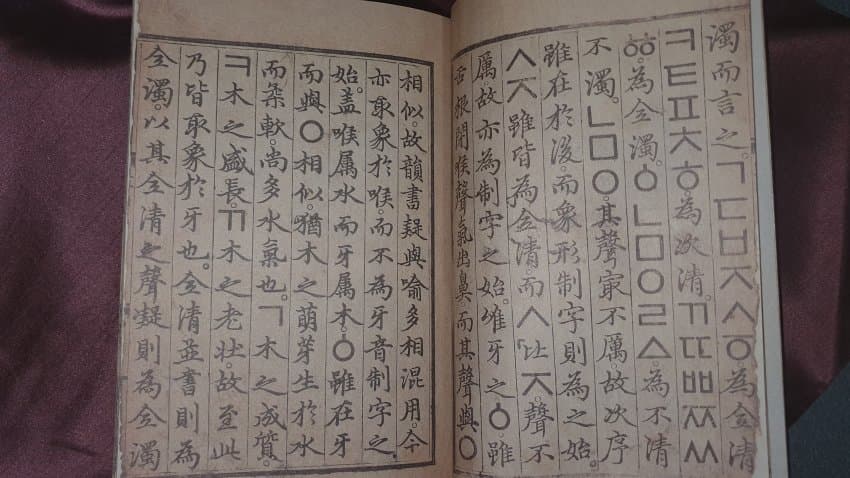 濁而言之。ㄱㄷㅂㅈㅅㆆ為全清
ㅋㅌㅍㅊㅎ。為次清。ㄲㄸㅃㅉㅆ
ㆅ。為全濁。ㆁㄴㅁㅇㄹㅿ。為不清
不濁。ㄴㅁㅇ。其聲㝡不厲。故次序
雖在於後。而象形制字則為之始。
ㅅㅈ雖皆為全清。而ㅅ比ㅈ。聲不
厲。故亦為制字之始。唯牙之ㆁ。雖
舌根閉喉聲氣出鼻。而其聲與ㅇ
相似。故韻書疑與喻多相混用。今
亦取象於喉。而不為牙音制字之
始。盖喉属水而牙属木。ㆁ雖在牙
而與ㅇ相似。猶木之萌芽生於水
而柔軟。尚多水氣也。ㄱ木之成質。
ㅋ木之盛長。ㄲ木之老壮。故至此
乃皆取象於牙也。全清並書則為
全濁。以其全清之聲凝則為全濁